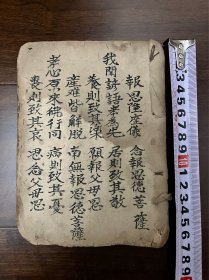 報恩陞座儀 念報恩德菩薩
我聞諺語孝為先 居則致其敬
養則致其樂 願報父母恩
產难皆解脱 南無報恩德菩薩
孝心原來佛同 病則致其憂
喪則致其哀 思念父母恩